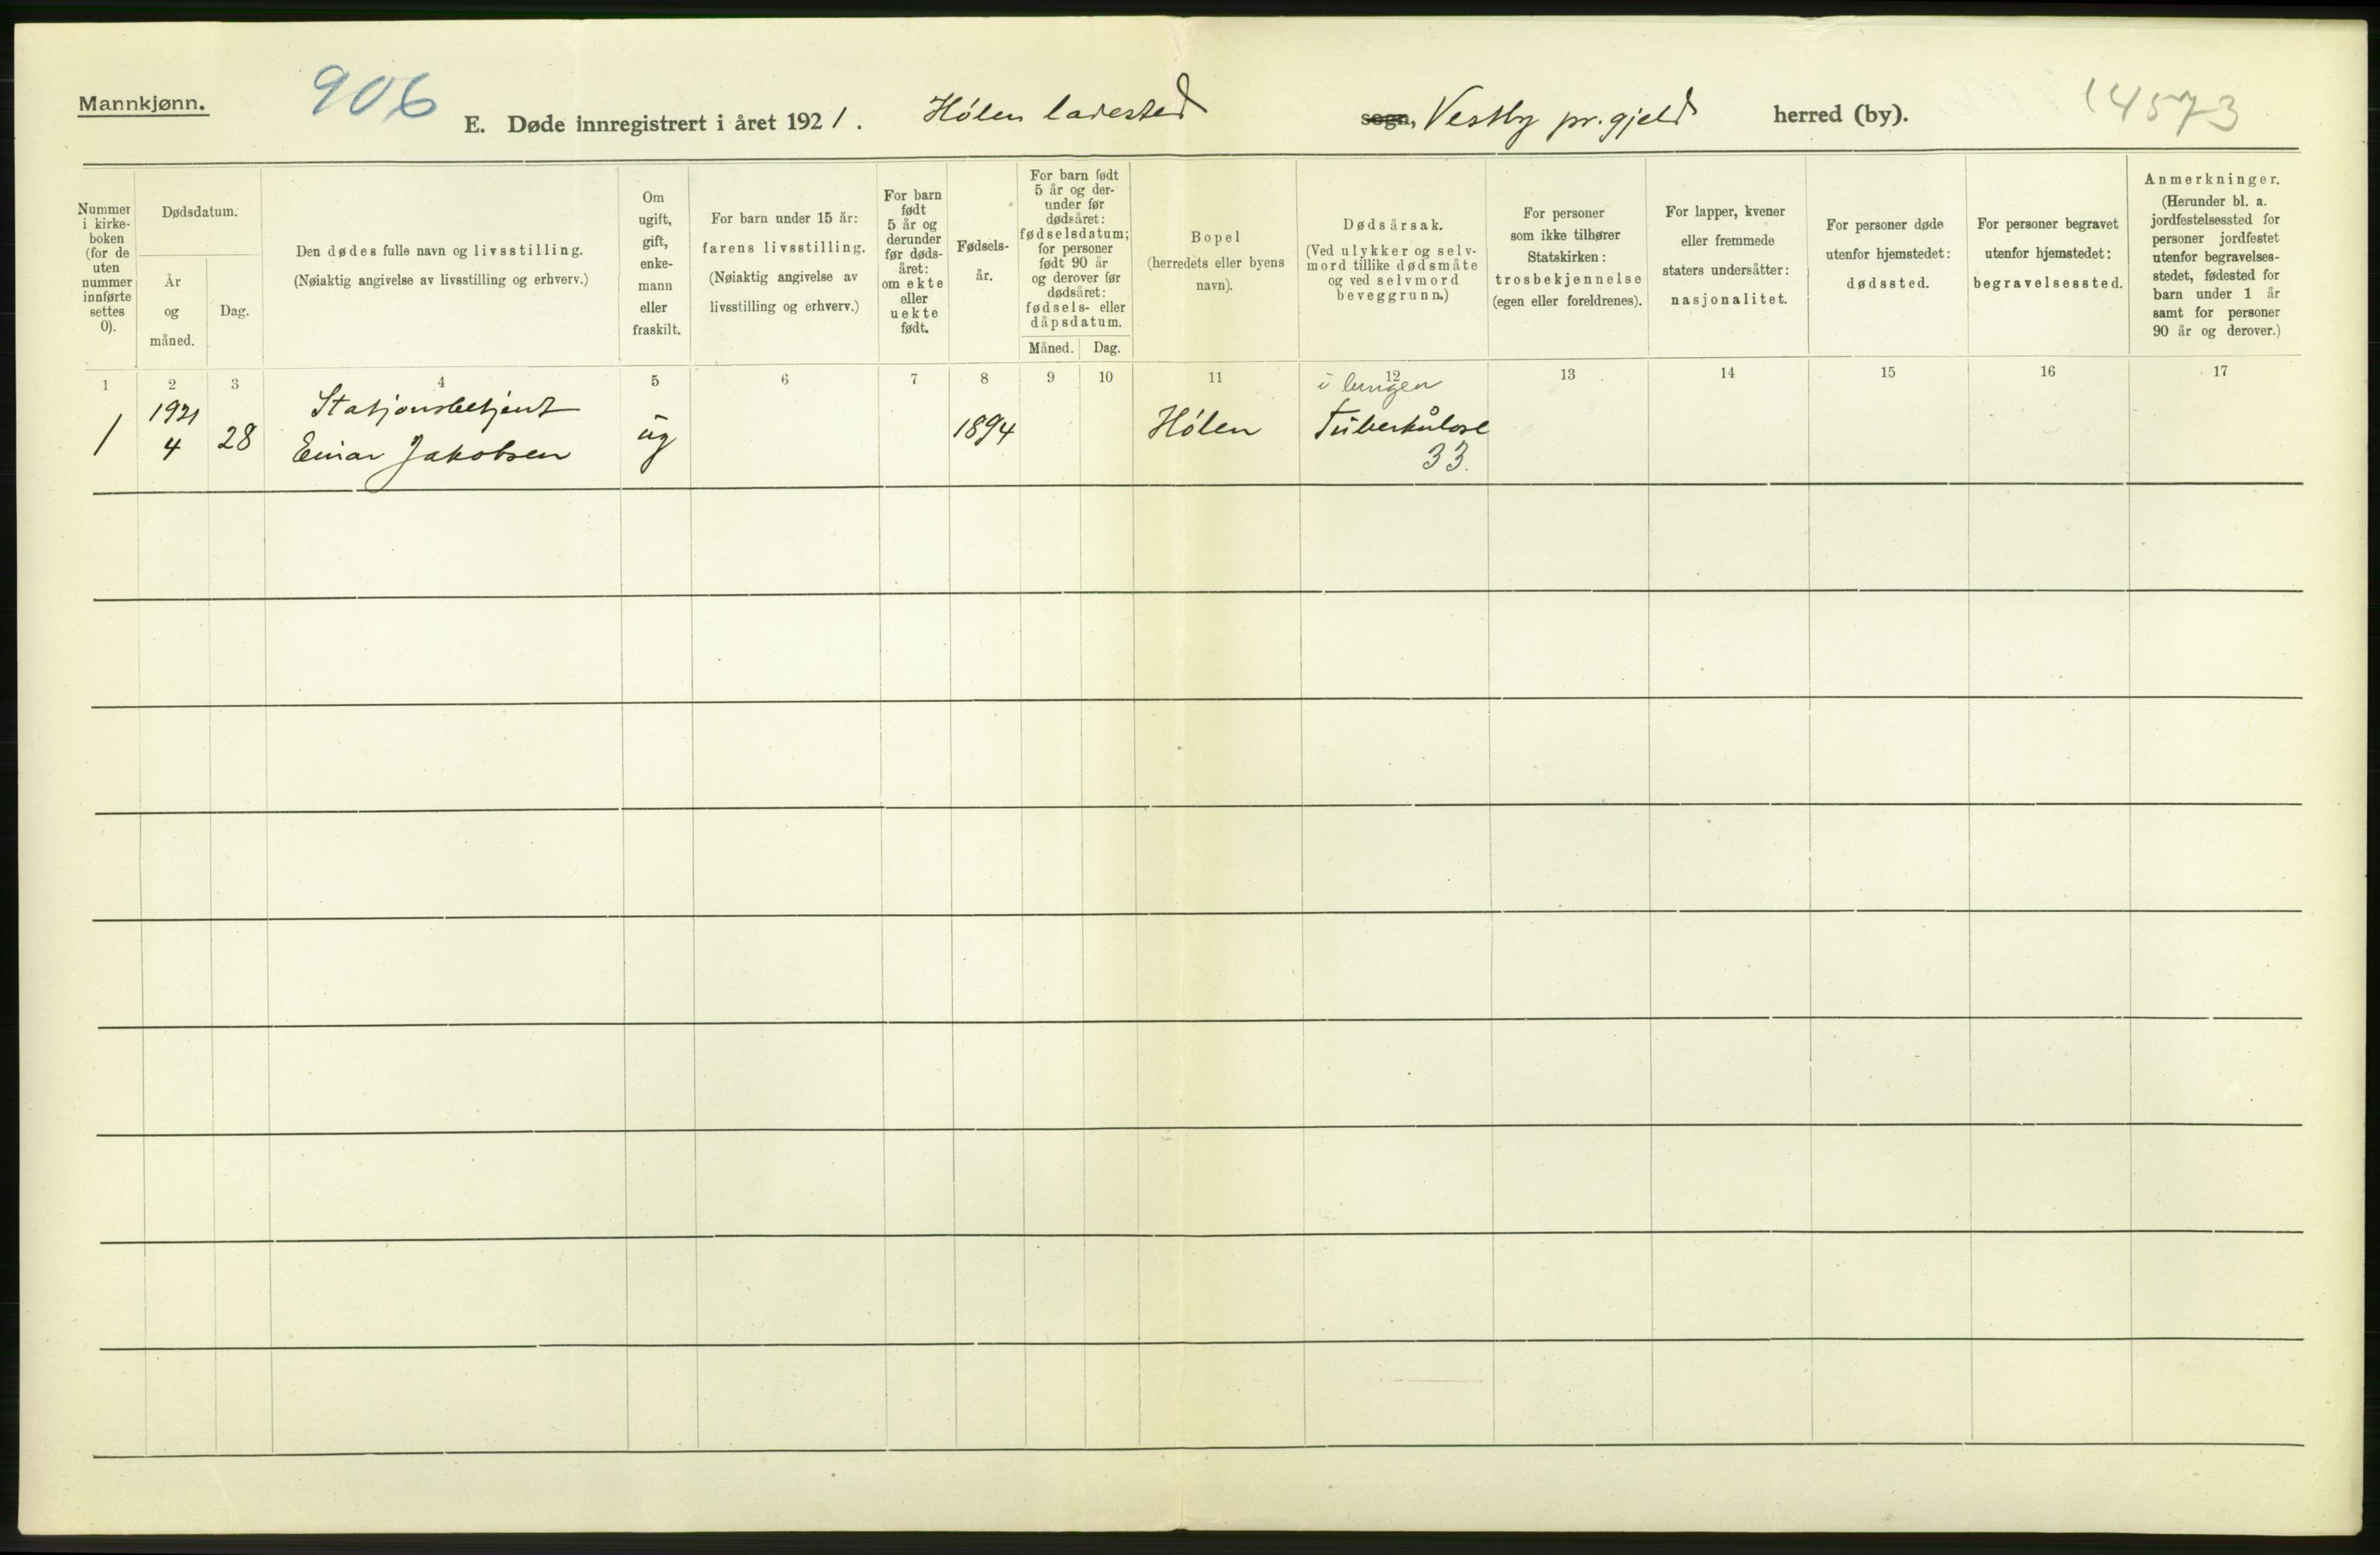 Mannkjønn.
906
E. Døde innregistrert i året 1921. Hølen ladested sogn, Vestby pr.gjeld herred (by).
14573
Nummer
i kirke-
boken
(for de
uten
nummer
innførte
settes
0).
Dødsdatum.
År
og
måned.
Dag.
Den dødes fulle navn og livsstilling.
(Nøiaktig angivelse av livsstilling og erhverv.)
Om
ugift,
gift,
enke-
mann
eller
fraskilt.
For barn under 15 år:
farens livsstilling.
(Nøiaktig angivelse av
livsstilling og erhverv.)
For barn
født
5 år og
derunder
før døds-
året:
om ekte
eller
uekte
født.
Fødsels-
år.
For barn født
5 år og der-
under før
dødsåret:
fødselsdatum;
for personer
født 90 år
og derover før
dødsåret:
fødsels- eller
dåpsdatum.
Måned.
Dag.
Bopel
(herredets eller byens
navn).
Dødsårsak.
(Ved ulykker og selv-
mord tillike dødsmåte
og ved selvmord
beveggrunn.)
For personer
som ikke tilhører
Statskirken:
trosbekjennelse
(egen eller foreldrenes).
For lapper, kvener
eller fremmede
staters undersåtter:
nasjonalitet.
For personer døde
utenfor hjemstedet:
dødssted.
For personer begravet
utenfor hjemstedet:
begravelsessted.
Anmerkninger.
(Herunder bl. a.
jordfestelsessted for
personer jordfestet
utenfor begravelses-
stedet, fødested for
barn under 1 år
samt for personer
90 år og derover.)
1 2 3 4 5 6 7 8 9 10 11 12 13 14 15 16 17
1
1921
4
28
Stasjonsbetjent
Einar Jakobsen
ug
1894
Hølen
i lungen
Tuberkulose
33.